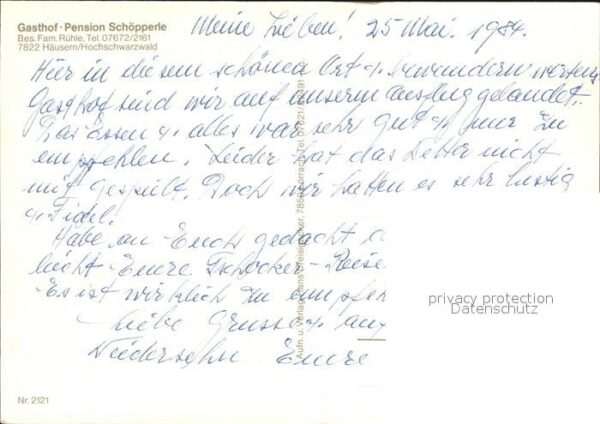 Gasthof · Pension Schöpperle
Bes. Fam. Rühle, Tel. 07672/2161
7822 Häusern/Hochschwarzwald
Meine Lieben! 25 Mai. 1984.
Hier in diesem schönen Ort u. bewundernswerten
Gasthof sind wir auf unserm Ausflug gelandet.
Das Essen u. alles war sehr gut u. nur zu
empfehlen. Leider hat das Wetter nicht
mit gespielt. Doch wir hatten es sehr lustig
u. Fidel.
Habe an Euch gedacht
Eure
Es ist wirklich zu empfeh
Liebe Grüsse u. auf
Wiedersehn Eure
Aufn. u. Verlag
privacy protection
Datenschutz
Nr. 2121